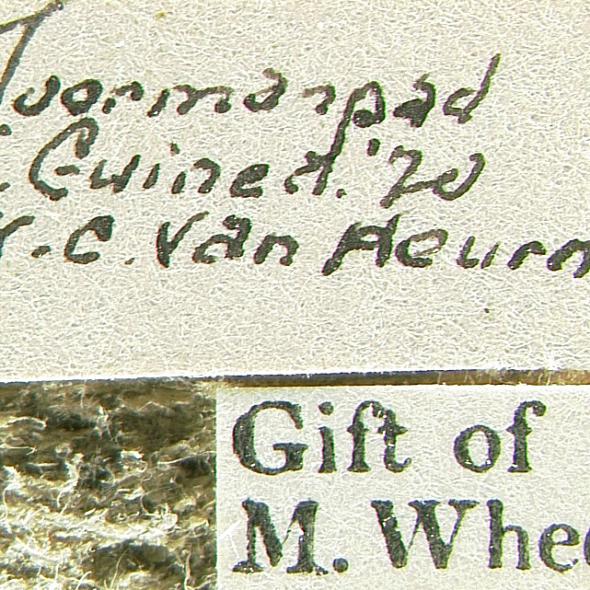 Doormanpad
Guinea.'20
W.C. van Heurn
Gift of
M. Whee